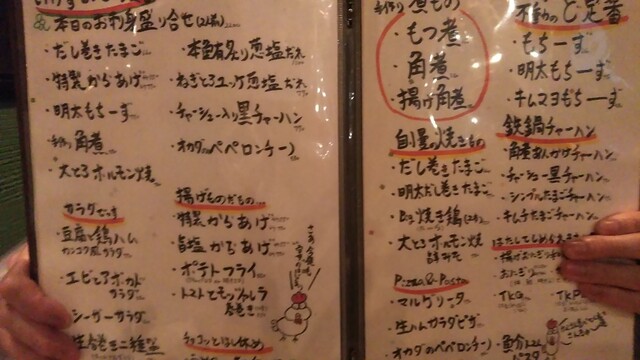 本日のお刺身盛り合せ(2人前)
・だし巻きたまご
・特製からあげ
・明太もちーず
・角煮
・大とろホルモン焼
・本鮪炙り葱塩だれ
・ねぎとろユッケ葱塩だれ
・チャーシュー入り黒チャーハン
・オカダのペペロンチーノ
カラダせっす
・豆腐と鶏ハム
サラダ
・エビとアボカド
サラダ
・シーザーサラダ
・生春巻
揚げものだもの
・特製からあげ
・旨塩からあげ
・ポテトフライ
・トマトとモッツァレラ
春巻き
煮もの
・もつ煮
・角煮
・揚げ角煮
自慢の焼きもの
・だし巻きたまご
・明太だし巻きたまご
・大とろホルモン焼
Pizza & Pasta
・マルゲリータ
・生ハムサラダピザ
・オカダのペペロンチーノ
不動のど定番
・もちーず
・明太もちーず
・キムマヨもちーず
鉄鍋チャーハン
・角煮あんかけチャーハン
・チャーシュー黒チャーハン
・シンプルたまごチャーハン
・キムチたまごチャーハン
・おにぎり
・TKG